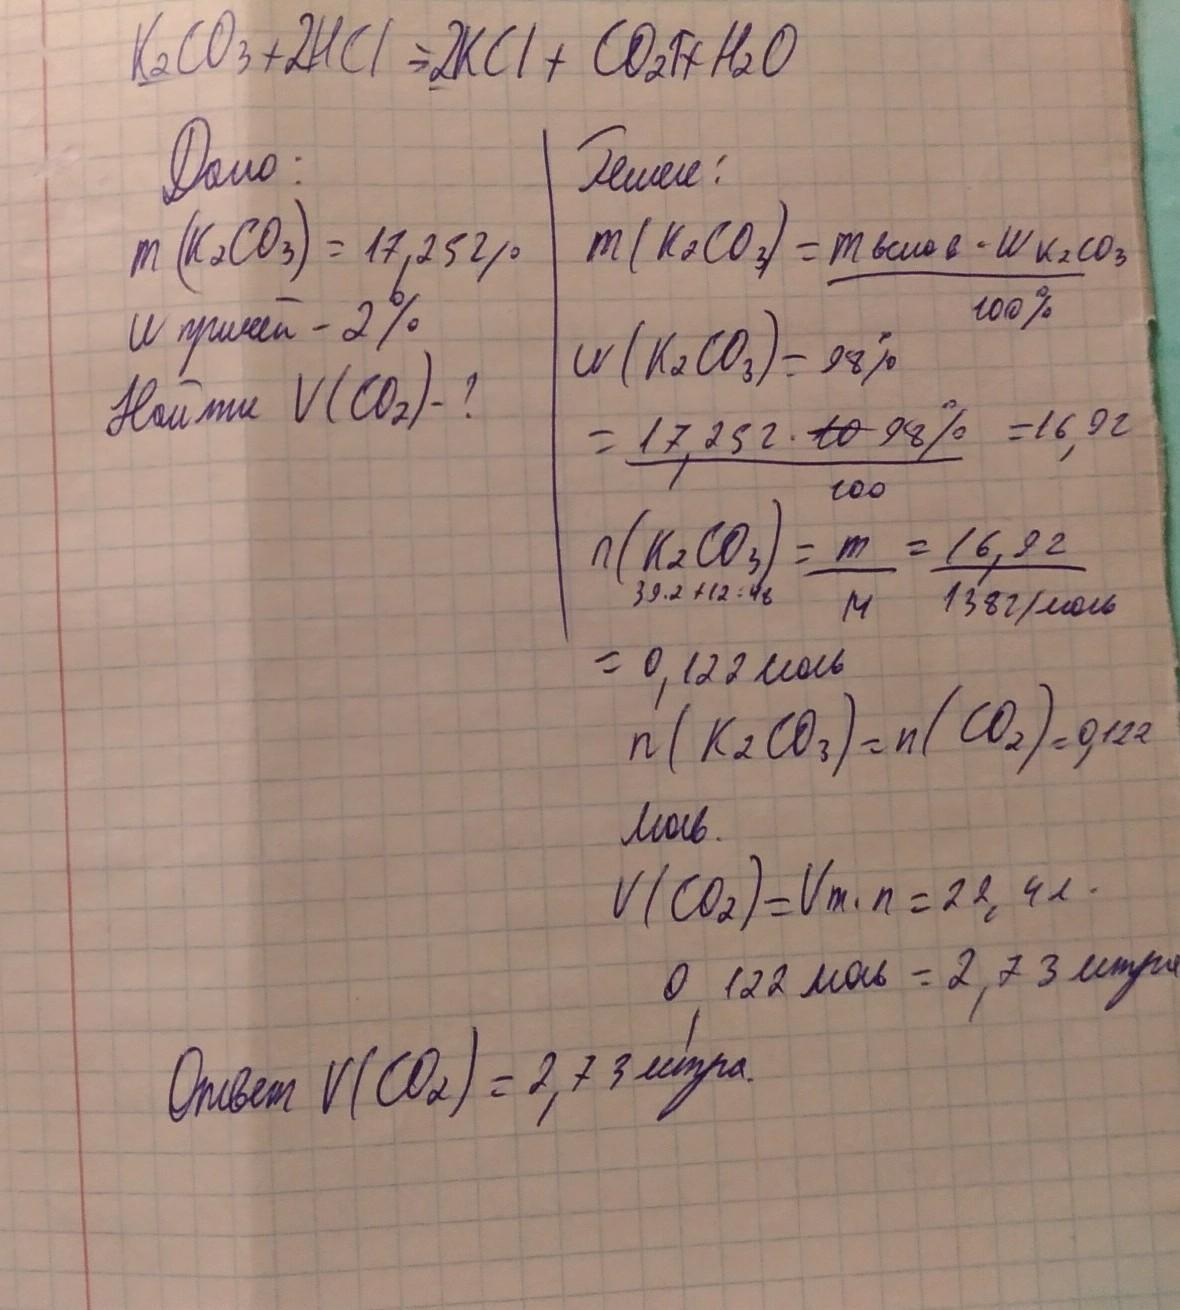 K2CO3+2HCl=2KCl+ CO2↑+H2O
Дано:
m(K2CO3)=17,25г%
W примесей - 2%
Найти V(CO2)-?
Решение:
m(K2CO3)= m в-ва · WK2CO3
100%
w(K2CO3)=98%
= 17,25г · 98% =16,9г
100
n(K2CO3)= m = 16,9г
39·2+12+48 M 138г/моль
= 0,122 моль
n(K2CO3)=n(CO2)=0,122
моль.
V(CO2)=Vm·n=22,4л·
0,122 моль = 2,73 литра
Ответ V(CO2)=2,73 литра.